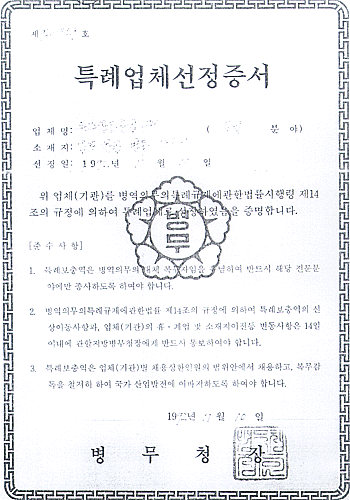 제 호
특례업체선정증서
업 체 명: ( 분 야)
소 재 지:
선 정 일: 19 년 월 일
위 업체(기관)를 병역의무의특례규제에관한법률시행령 제14
조의 규정에 의하여 특례업체로 선정하였음을 증명합니다.
병무
[준 수 사 항]
1. 특례보충역은 병역의무의 대체 복무자임을 하여 반드시 해당 전문분
야에만 종사하도록 하여야 합니다.
2. 병역의무의특례규제에관한법률 제14조의 규정에 의하여 특례보충역의 신
상이동사항과, 업체(기관)의 휴·폐업 및 소재지이전등 변동사항은 14일
이내에 관할지방병무청장에게 반드시 통보하여야 합니다.
3. 특례보충역은 업체(기관)별 채용상한인원의 범위안에서 채용하고, 복무감
독을 철저히 하여 국가 산업발전에 이바지하도록 하여야 합니다.
19 년 월 일
병 무 청 장